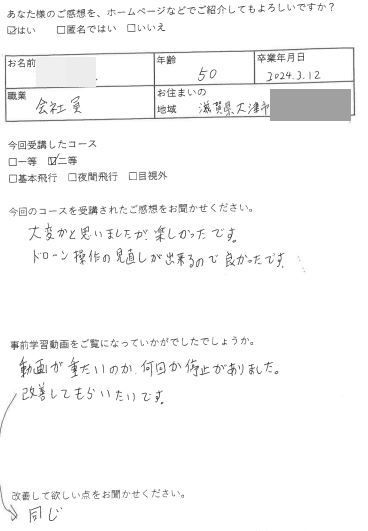 あなた様のご感想を、ホームページなどでご紹介してもよろしいですか?
☑はい □匿名ではい □いいえ
お名前 年齢 50 卒業年月日 2024.3.12
職業 会社員 お住まいの地域 滋賀県大津市
今回受講したコース
□一等 ☑二等
□基本飛行 □夜間飛行 □目視外
今回のコースを受講されたご感想をお聞かせください。
大変かと思いましたが、楽しかったです。
ドローン操作の見直しが出来るので良かったです。
事前学習動画をご覧になっていかがでしたでしょうか。
動画が重たいのか、何回か停止がありました。
改善してもらいたいです。
改善して欲しい点をお聞かせください。
同じ